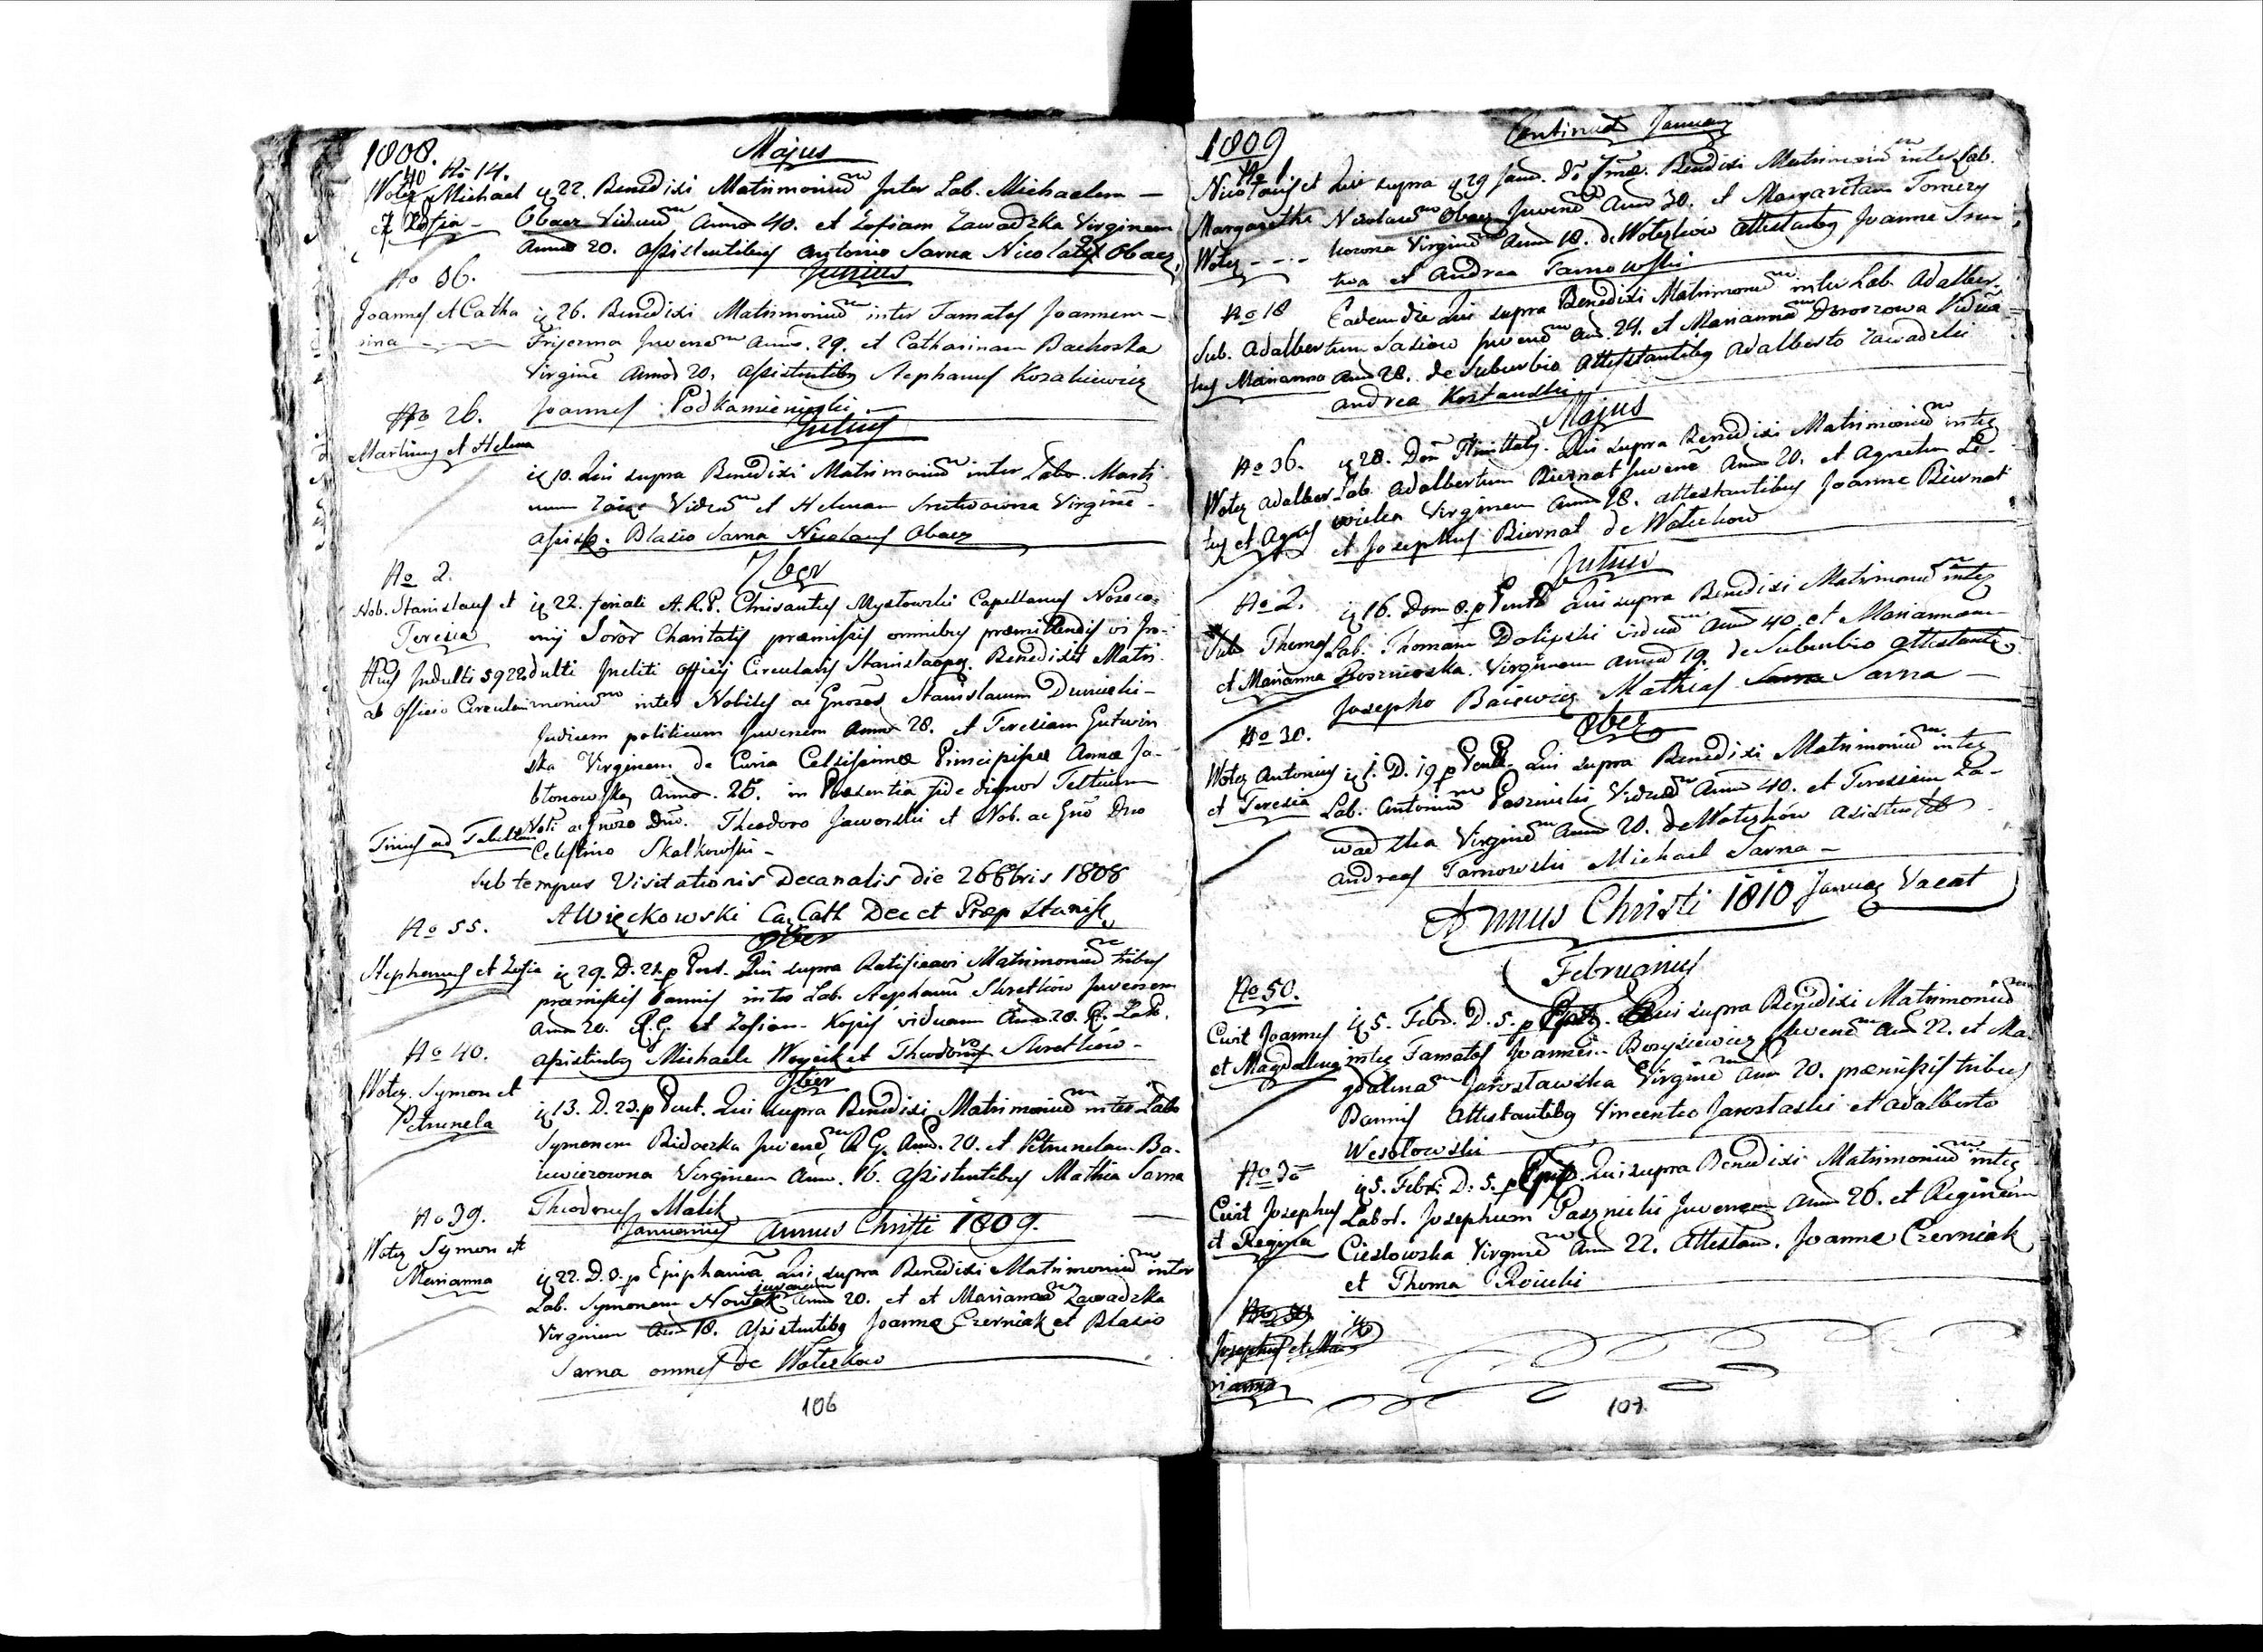 1808.
Majus
40 No 14.
Wołcz Michael
et Zofia -
ię 22. Benedixi Matrimonium Inter Lab. Michaelem -
Obacz Viduum Anno 40. et Zofiam Zawadzka Virginem
Anno 20. assistentibus Antonio Sarna Nicolaus Obacz
Junius
No 36.
Joannes et Catha
rina
ię 26. Benedixi Matrimonium inter Famatos Joannem -
Juvenem Anno. 29. et Catharinam Bachoska
Virginem Anno 20, assistentibus Stephanus Kozakiewicz
Joannes Podkamieniecki
No 26.
Julius
Martinus et Helena
ię 10. Qui supra Benedixi Matrimonium inter Labo. Marti
num Zaiąc Viduum et Helenam Virginem -
assist. Blasio Sarna Nicolaus Obacz
No 2.
7ber
Nob. Stanislaus et
Teresia
Hujus Indulti 5922
ab Officio Circulari
ię 22. feriali A. R. P. Chrisantus Mysłowski Capellanus Nosoco-
mij Soror Charitatis praemissis omnibus praemittendis vi In-
dulti Incliti Officij Circularis Stanislaopo. Benedixit Matri
monium inter Nobiles ac Gnosos Stanislaum Duniecki -
Judicem politicum Juvenem Anno 28. et Teresiam Gutwin
ska Virginem de Curia Celsissimae Principissae Annae Ja-
błonowskey Anno. 25. in Praesentia fide dignor Testium
Nob. ac Gnoso Dno. Theodoro Jaworski et Nob. ac Gno Dno
Celestino Skałkowski -
sub tempus Visitationis Decanalis die 26 8bris 1808
AWięckowski Ca. Cath Dec et Praep Stanisl.
No 55.
8ber
Stephanus et Zofia
ię 29. D. 21. p Pent. Qui supra Ratificavi Matrimonium tribus
praemissis bannis inter Lab. Stephanum Skretkow Juvenem
Anno 20. R. G. et Zofiam Kopis viduam Anno 28. R. Lat.
assistentibus Michaele Woycik et Theodorus Skretkow -
No 40.
9ber
Wołcz. Symon et
Petrunela
ię 13. D. 23. p Pent. Qui supra Benedixi Matrimonium inter Labo
Symonem Bidaczka Juvenem R G. Anno. 20. et Petrunelam Ba-
Virginem Ann. 16. assistentibus Mathia Sarna
Theodorus Malik
Januarius Annus Christi 1809.
No 39.
Wołcz Symon et
Marianna
ię 22. D. 3. p Epiphania Qui supra Benedixi Matrimonium inter
Lab. Symonem Nowak juvenem Anno 20. et et Mariannam Zawadzka
Virginem Anno 18. assistentibus Joanne Czerniak et Blasio
Sarna omnes de Wołczkow
106
1809
Continuat January
No 1.
Nicolaus et
Margaretha
Wołcz - - -
Qui supra ię 29 Janu. Benedixi Matrimonium inter Lab.
Nicolaum Obacz Juvenem Anno 30. et Margaretam Tomczy
kowna Virginem Anno 18. de Wołczkow attestantibus Joanne
et Andrea Tarnowski
No 18
Sub. Adalber
tus Marianna
Eadem die Qui supra Benedixi Matrimonium inter Lab. Adalber-
tum Sasiow Juvenem An. 24. et Mariannam Viduam
Anno 28. de Suburbio attestantibus Adalberto Zawadzki
Andrea Kostanski
Majus
No 36.
Wołcz Adalber
tus et Agnes
ię 28. Dom Trinitatis. Qui supra Benedixi Matrimonium inter
Lab. Adalbertum Biernat Juvenem Anno 20. et Agnetem Le-
wicka Virginem Anno 18. attestantibus Joanne Biernat
et Josephus Biernat de Wołczkow
Julius
No 2.
Sub Thomas
et Marianna
ię 16. Dom 8. p Pente Qui supra Benedixi Matrimonium inter
Lab. Thomam Dolipski viduum Anno 40. et Mariannam
Virginem Anno 19. de Suburbio attestantibus
Josepho Baiewicz Mathias Sarna -
8ber
No 30.
Wołcz Antonius
et Teresia
ię 1. D. 19 p Pent. Qui supra Benedixi Matrimonium inter
Lab. Antonium Pasznicki Viduum Anno 40. et Teressiam Za-
wadzka Virginem Anno 20. de Wołczkow
Andreas Tarnowski Michael Sarna -
Annus Christi 1810 January Vacat
Februarius
No 50.
Civit Joannes
et Magdalena
ię 5. Febr. D. 5. p Qui supra Benedixi Matrimonium
inter Famatos Joannem Borysiewicz Juvenem Ann 22. et Ma-
gdalenam Jarosławska Virginem Ann 20. praemissis tribus
Bannis attestantibus Vincentio Jarosłaski et Adalberto
Wesołowski
No 30
Civit Josephus
et Regina
ię 5. Febr. D. 5. p Epiph. Qui supra Benedixi Matrimonium inter
Labor. Josephum Pasznicki Juvenem Anno 26. et Reginam
Ciesłowska Virginem Anno 22. Attestan. Joanne Czerniak
et Thoma Roicki
Josephus et Ma
rianna
107